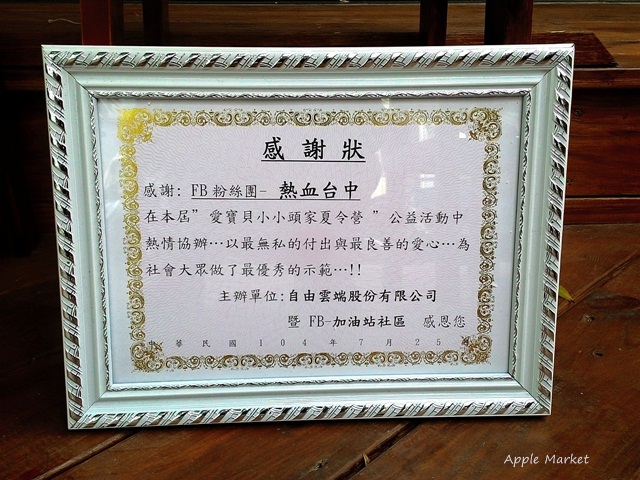 感謝狀
感謝: FB 粉絲團- 熱血台中
在本屆”愛寶貝小小頭家夏令營 ”公益活動中
熱情協辦…以最無私的付出與最良善的愛心…為
社會大眾做了最優秀的示範…!!
主辦單位:自由雲端股份有限公司
暨 FB-加油站社區 感恩您
中華民國104年7月25日
Apple Market